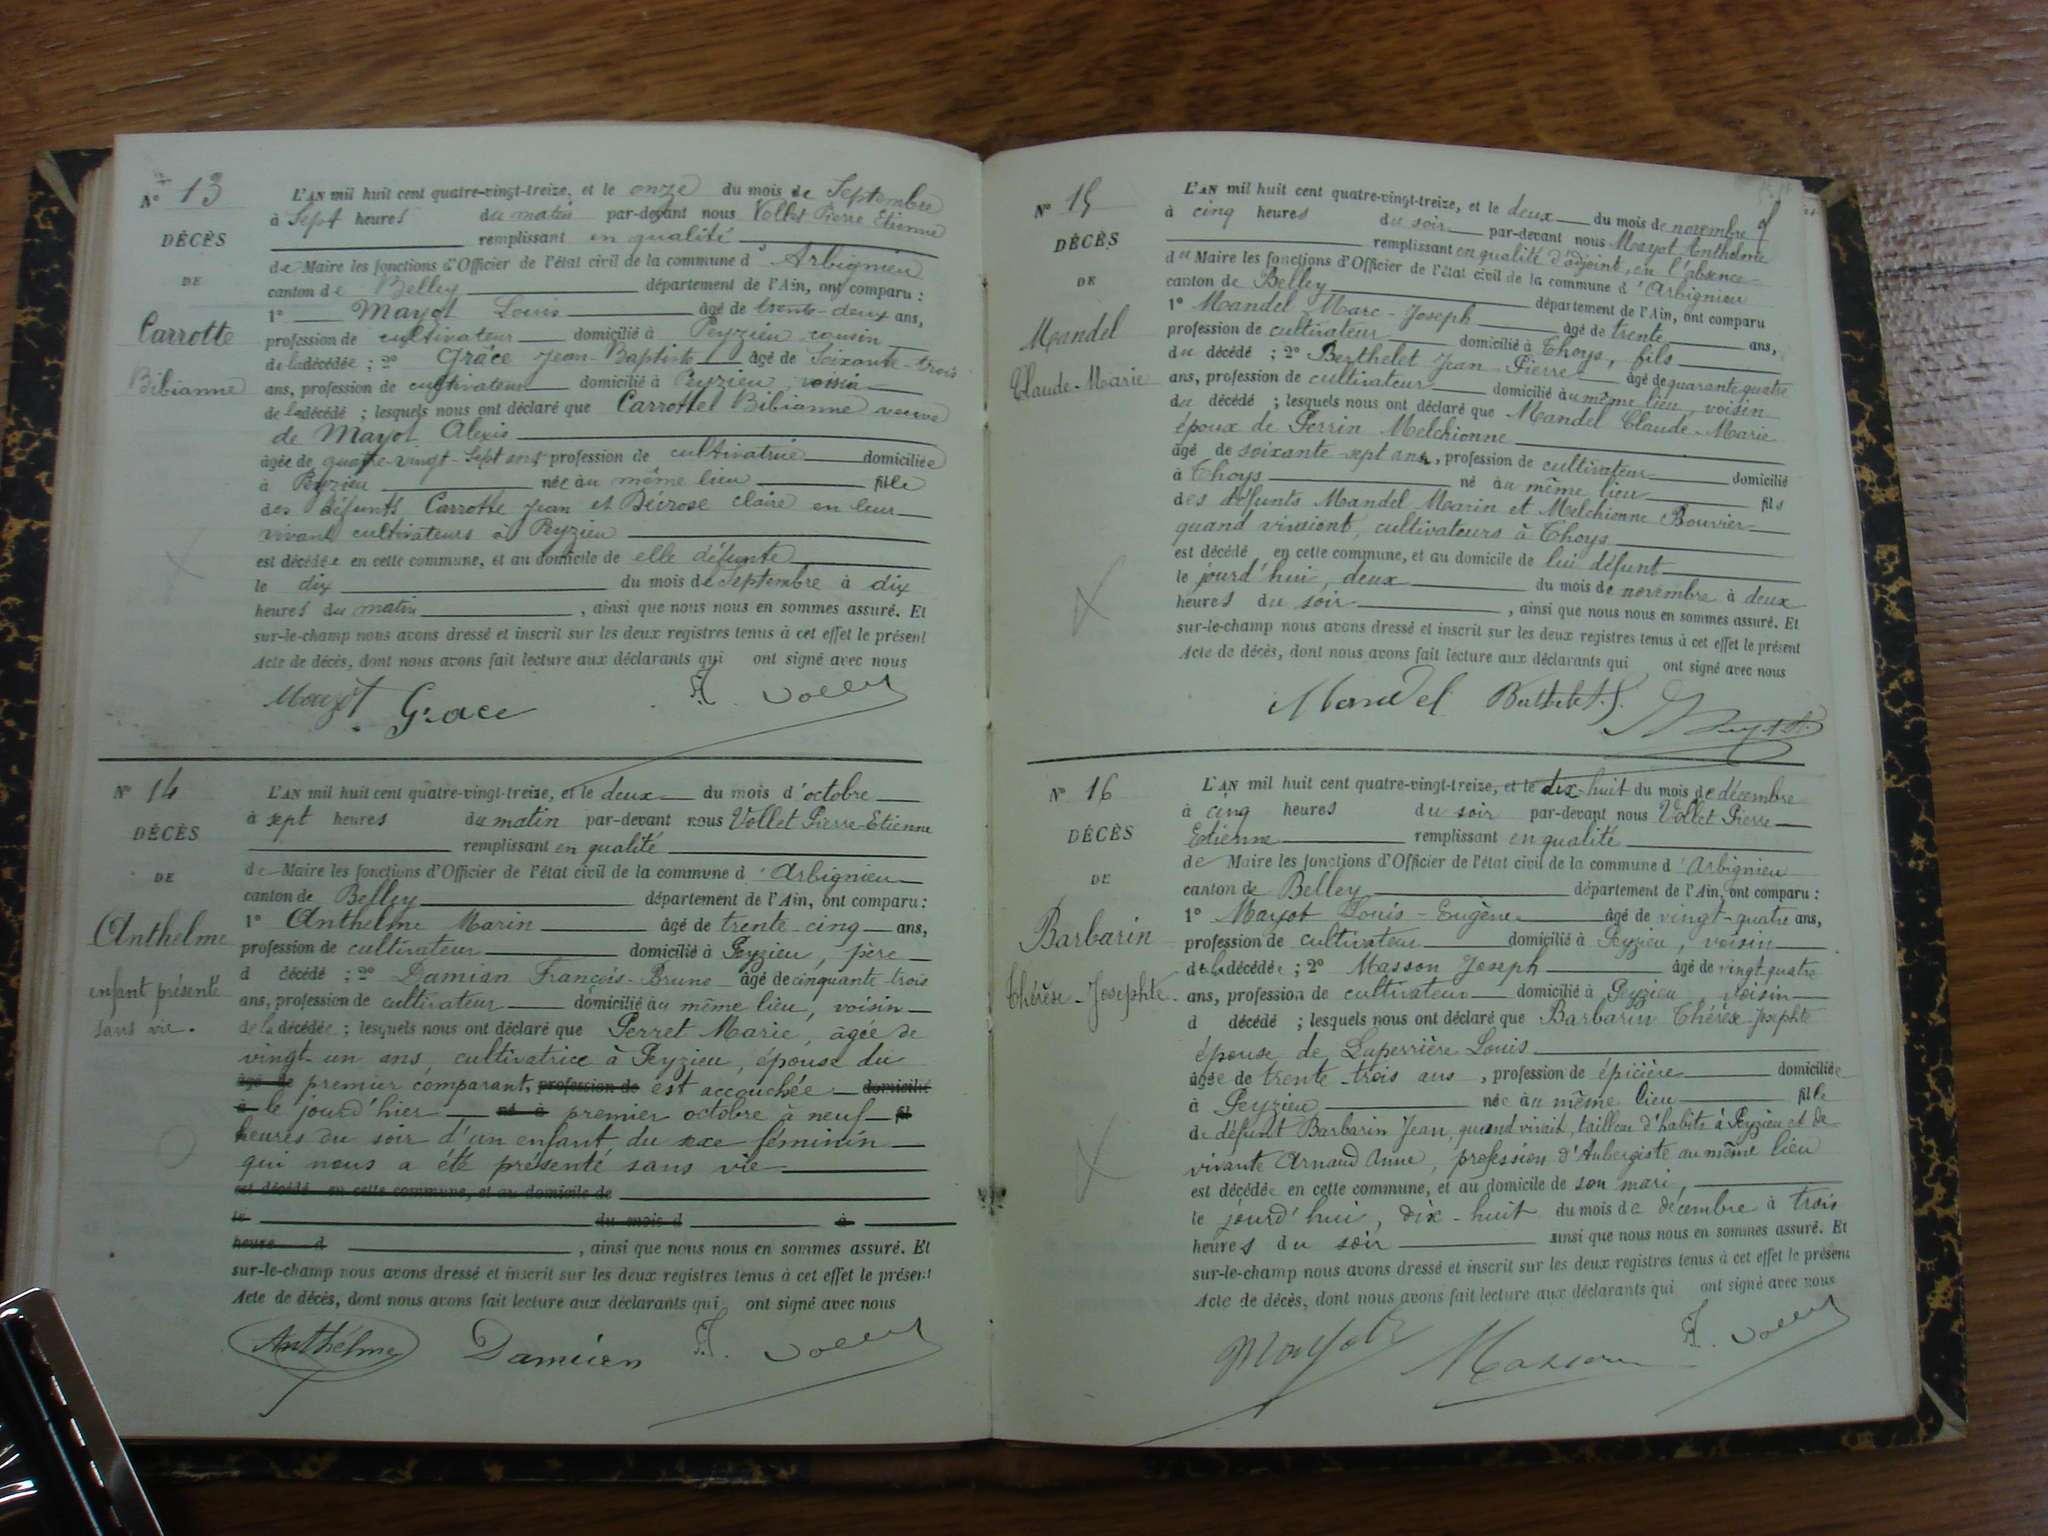 N° 13
DÉCÈS
DE
Carrotte
Bibianne
L'AN mil huit cent quatre-vingt-treize, et le onze du mois de Septembre
à Sept heures du matin par-devant nous Vollet Pierre Etienne
remplissant en qualité
de Maire les fonctions d'Officier de l'état civil de la commune d'Arbignieu
canton de Belley département de l'Ain, ont comparu :
1° Mayot Louis âgé de trente-deux ans,
profession de cultivateur domicilié à Peyzieu cousin
de la décédée ; 2° Grâce Jean-Baptiste âgé de Soixante-trois
ans, profession de cultivateur domicilié à Peyzieu, voisin
de la décédé ; lesquels nous ont déclaré que Carrottel Bibianne veuve
de Mayot Alexis
âgée de quatre-vingt-Sept ans, profession de cultivatrice domiciliée
à Peyzieu née au même lieu fille
des défunts Carrotte Jean et Décrose Claire en leur
vivant cultivateurs à Peyzieu
est décédée en cette commune, et au domicile de elle défunte
le dix du mois de Septembre à dix
heures du matin, ainsi que nous nous en sommes assuré. Et
sur-le-champ nous avons dressé et inscrit sur les deux registres tenus à cet effet le présent
Acte de décès, dont nous avons fait lecture aux déclarants qui ont signé avec nous
Mayot Grace Vollet
N° 14
DÉCÈS
DE
Anthelme
enfant présenté
sans vie.
L'AN mil huit cent quatre-vingt-treize, et le deux du mois d'octobre
à sept heures du matin par-devant nous Vollet Pierre-Etienne
remplissant en qualité
de Maire les fonctions d'Officier de l'état civil de la commune d'Arbignieu
canton de Belley département de l'Ain, ont comparu :
1° Anthelme Marin âgé de trente-cinq ans,
profession de cultivateur domicilié à Peyzieu, père
d décédé ; 2° Damian François-Bruno âgé de cinquante-trois
ans, profession de cultivateur domicilié au même lieu, voisin
de la décédée ; lesquels nous ont déclaré que Perret Marie, âgée de
vingt-un ans, cultivatrice à Peyzieu, épouse du
âgé de premier comparant, profession de est accouchée domicilié
à le jourd'hier né à premier octobre à neuf fil
heures du soir d'un enfant du sexe féminin
qui nous a été présenté sans vie
est décédé en cette commune, et au domicile de
le du mois d à
heure d , ainsi que nous nous en sommes assuré. Et
sur-le-champ nous avons dressé et inscrit sur les deux registres tenus à cet effet le présent
Acte de décès, dont nous avons fait lecture aux déclarants qui ont signé avec nous
Anthelme Damien Vollet
N° 15
DÉCÈS
DE
Mandel
Claude-Marie
L'AN mil huit cent quatre-vingt-treize, et le deux du mois de novembre
à cinq heures du soir par-devant nous Mayot Anthelme
remplissant en qualité d'adjoint, en l'absence
du Maire les fonctions d'Officier de l'état civil de la commune d'Arbignieu
canton de Belley département de l'Ain, ont comparu
1° Mandel Marc-Joseph âgé de trente ans,
profession de cultivateur domicilié à Thoys, fils
du décédé ; 2° Berthelet Jean-Pierre âgé de quarante-quatre
ans, profession de cultivateur domicilié au même lieu, voisin
du décédé ; lesquels nous ont déclaré que Mandel Claude-Marie
époux de Perrin Melchionne
âgé de soixante-sept ans, profession de cultivateur domicilié
à Thoys né au même lieu fils
des défunts Mandel Marin et Melchionne Bouvier
quand vivaient, cultivateurs à Thoys
est décédé en cette commune, et au domicile de lui défunt
le jourd'hui, deux du mois de novembre à deux
heures du soir, ainsi que nous nous en sommes assuré. Et
sur-le-champ nous avons dressé et inscrit sur les deux registres tenus à cet effet le présent
Acte de décès, dont nous avons fait lecture aux déclarants qui ont signé avec nous
Mandel Mayot
N° 16
DÉCÈS
DE
Barbarin
Thérèse-Josephte
L'AN mil huit cent quatre-vingt-treize, et le dix-huit du mois de décembre
à cinq heures du soir par-devant nous Vollet Pierre
Etienne remplissant en qualité
de Maire les fonctions d'Officier de l'état civil de la commune d'Arbignieu
canton de Belley département de l'Ain, ont comparu :
1° Mayot Louis-Eugène âgé de vingt-quatre ans,
profession de cultivateur domicilié à Peyzieu, voisin
de la décédée ; 2° Masson Joseph âgé de vingt-quatre
ans, profession de cultivateur domicilié à Peyzieu voisin
d décédé ; lesquels nous ont déclaré que Barbarin Thérèse-Josephte
épouse de Laperrière Louis
âgée de trente-trois ans, profession de épicière domiciliée
à Peyzieu née au même lieu fille
de défunt Barbarin Jean, quand vivait, tailleur d'habits à Peyzieu et de
vivante Arnaud Anne, profession d'Aubergiste au même lieu
est décédée en cette commune, et au domicile de son mari,
le jourd'hui, dix-huit du mois de décembre à trois
heures du soir ainsi que nous nous en sommes assuré. Et
sur-le-champ nous avons dressé et inscrit sur les deux registres tenus à cet effet le présent
Acte de décès, dont nous avons fait lecture aux déclarants qui ont signé avec nous
Mayot Masson Vollet